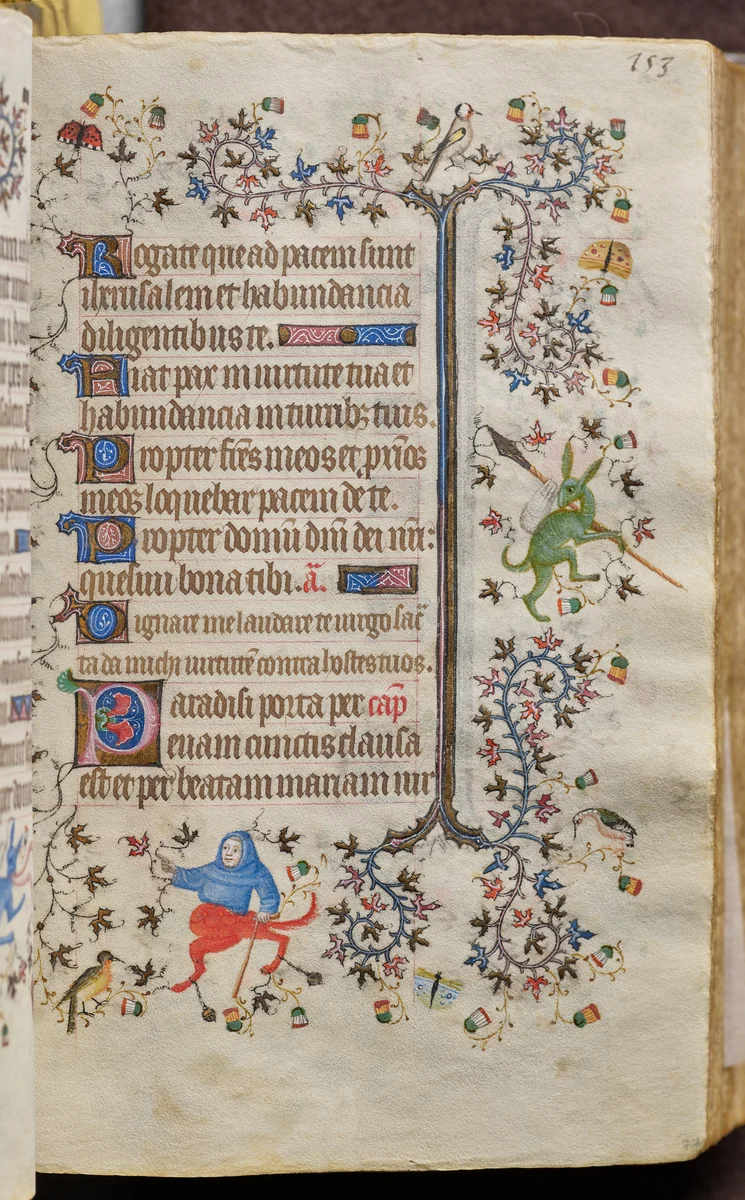 153
Rogate que ad pacem sunt
iherusalem et habundancia
diligentibus te.
Fiat pax in uirtute tua et
habundancia in turribꝫ tuis.
Propter fr̄es meos et prı̄os
meos loquebar pacem de te.
Propter domū dn̄i dei nr̄i:
quesiui bona tibi. a͞.
Dignare me laudare te uirgo sac̄
ta da michi uirtutē contra hostes tuos.
Paradisi porta per cap̄
euam cunctis clausa
est et per beatam mariam uir
77